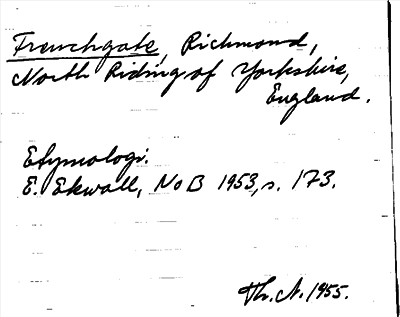 Frenchgate, Richmond,
North Riding of Yorkshire,
England.
Etymologi.
E. Ekwall, NoB 1953, s. 173.
Th. N. 1955.